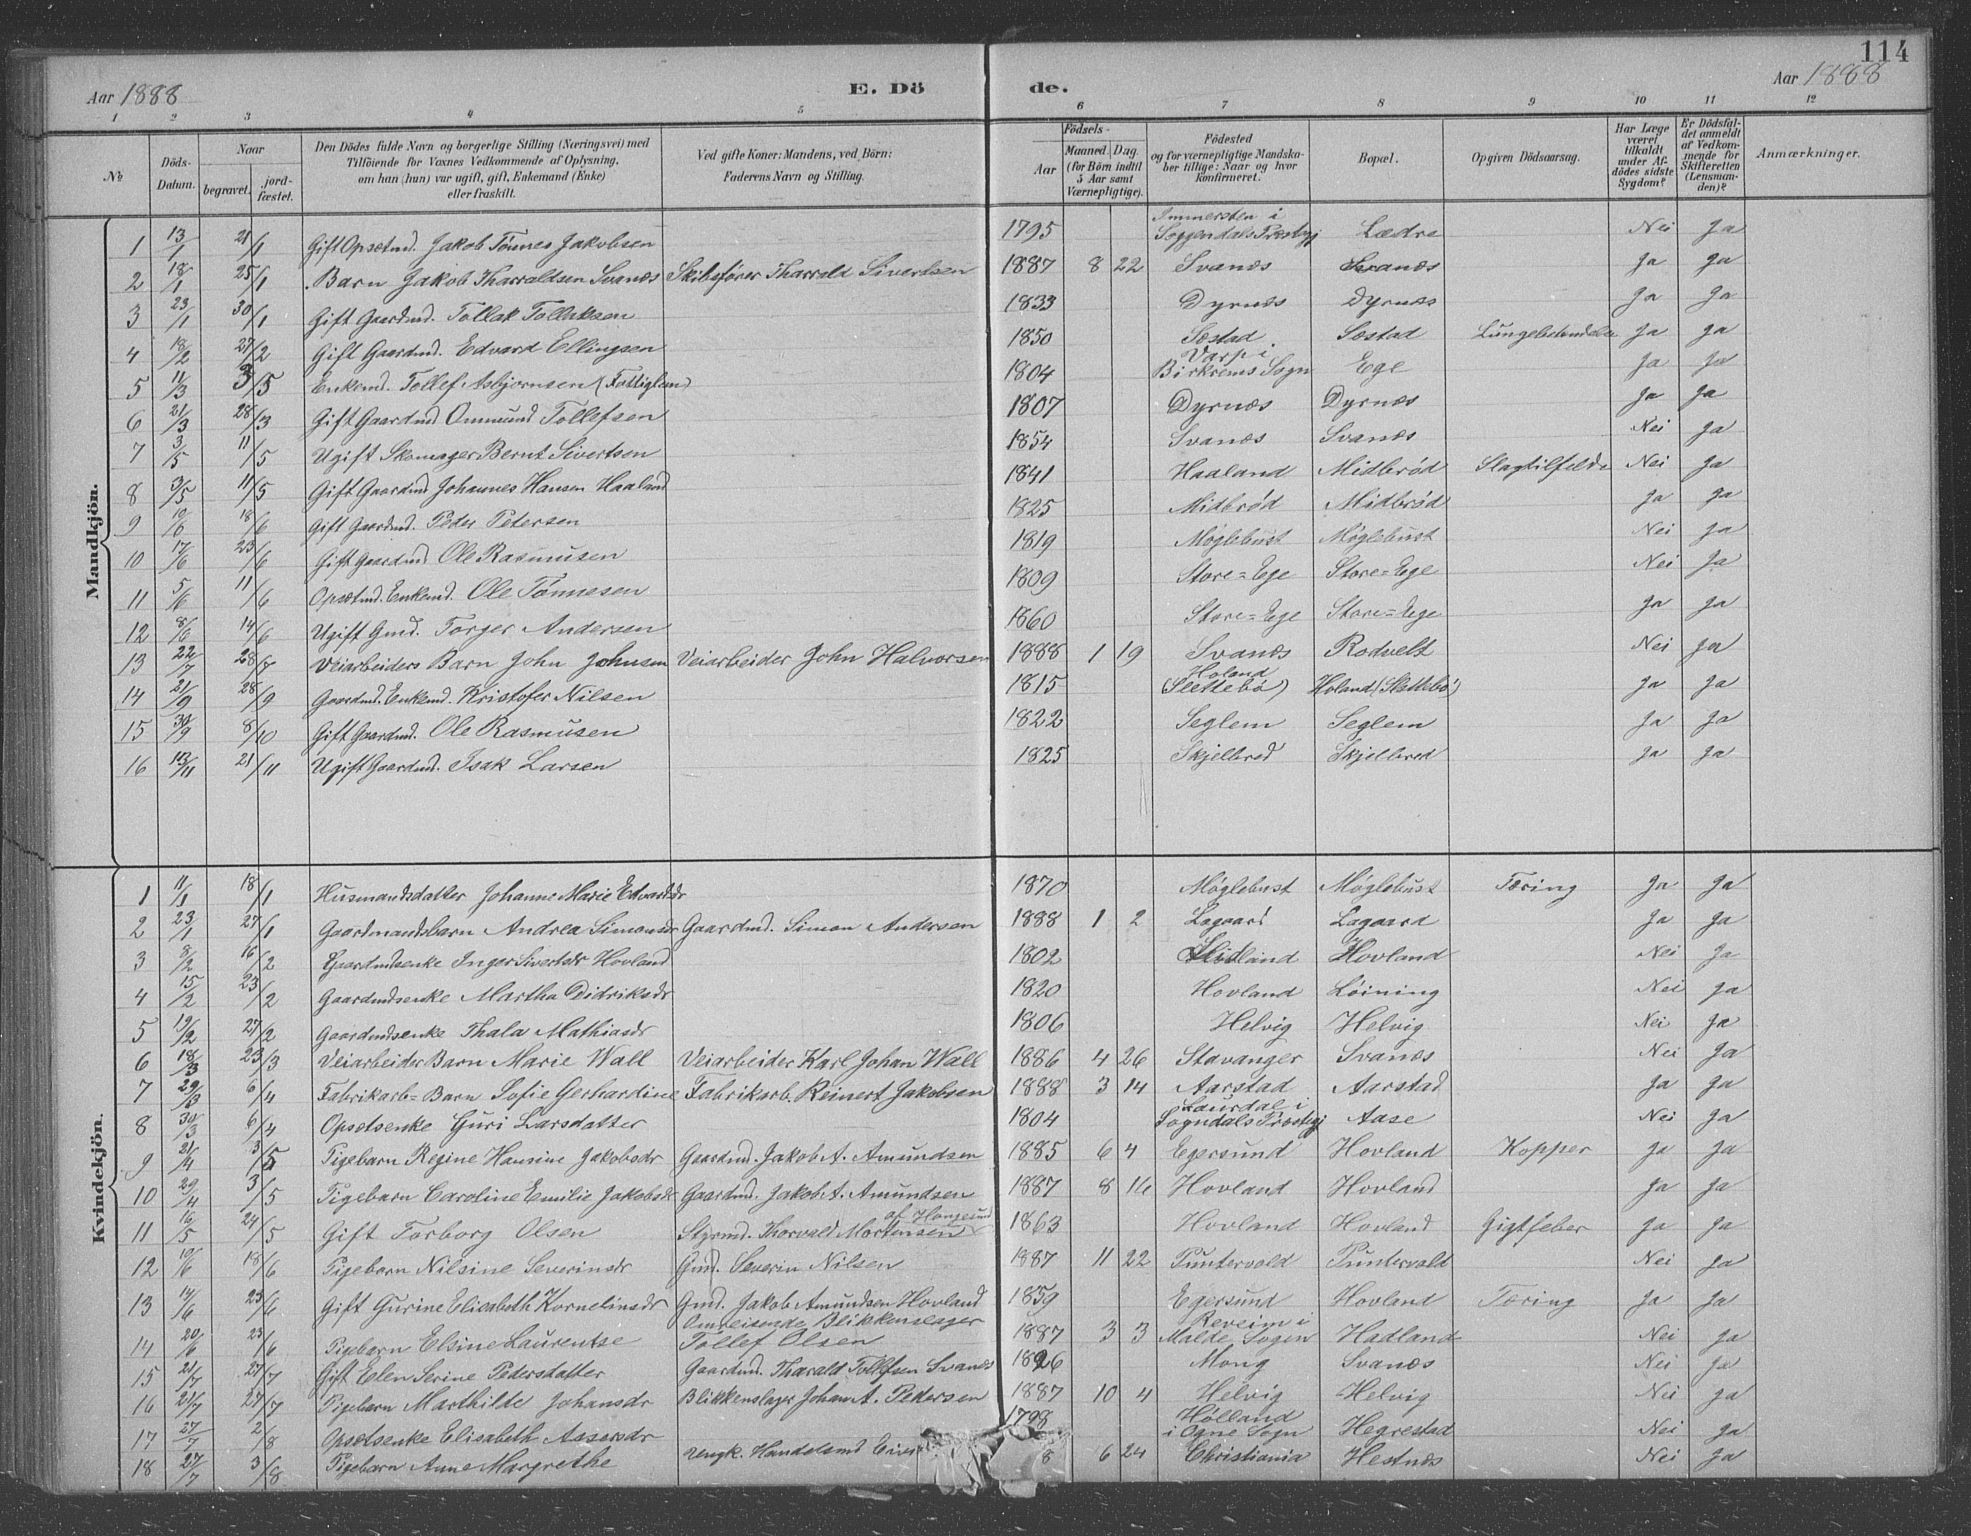 114
Aar 1888 E. Dö de. Aar 1888
1 2 3 4 5 6 7 8 9 10 11 12
№ Döds-Datum. Naar begravet. jord-fæstet. Den Dödes fulde Navn og borgerlige Stilling (Næringsvei) med Tilföiende for Voxnes Vedkommende af Oplysning, om han (hun) var ugift, gift, Enkemand (Enke) eller fraskilt. Ved gifte Koner: Mandens, ved Börn: Faderens Navn og Stilling. Födsels- Aar Maaned. Dag. (for Börn indtil 5 Aar samt Værnepligtige). Födested og for værnepligtige Mandskaber tillige: Naar og hvor konfirmeret. Bopæl. Opgiven Dödsaarsag. Har Læge været tilkaldt under Afdödes sidste Sygdom? Er Dödsfaldet anmeldt af Vedkommende for Skifteretten (Lensmanden)? Anmærkninger.
Mandkjön.
1 13/1 21/1 Gift Opsætmd. Jakob Tønnes Jakobsen 1795 Immersten i Soggendals Præstgj Lædre Nei Ja
2 18/1 25/1 Barn Jakob Tharaldsen Svanæs Skibsfører Tharald Sivertsen 1887 8 22 Svanæs Svanæs Ja Ja
3 23/1 30/1 Gift Gaardmd. Tollak Tollaksen 1833 Dyrnæs Dyrnæs Ja Ja
4 18/2 27/2 Gift Gaardmd. Edvard Ellingsen 1850 Sæstad Sæstad Lungebetændelse Ja Ja
5 11/3 3/5 Enkemd. Tollef Asbjørnsen (Fattiglem) 1804 Varp i Birkrems Sogn Ege Ja Ja
6 21/3 28/3 Gift Gaardmd Ommund Tollefsen 1807 Dyrnæs Dyrnæs Ja Ja
7 3/5 11/5 Ugift Skomager Bernt Sivertsen 1854 Svanæs Svanæs Nei Ja
8 3/5 11/5 Gift Gaardmd Johannes Hansen Haaland 1841 Haaland Midbrød Slagtilfælde Nei Ja
9 10/6 18/6 Gift Gaardmd. Peder Petersen 1825 Midbrød Midbrød Ja Ja
10 17/6 23/6 Gift Gaardmd Ole Rasmusen 1819 Møglebust Møglebust Nei Ja
11 5/6 11/6 Opsætmd. Enkemd. Ole Tønnesen 1809 Store=Ege Store=Ege Nei Ja
12 8/6 14/6 Ugift Gmd. Torger Andersen 1860 Store=Ege Store=Ege Ja Ja
13 22/7 28/7 Veiarbeiders Barn John Johnsen Veiarbeider John Halvorsen 1888 1 19 Svanæs Rodvelt Nei Ja
14 21/9 28/9 Gaardmd. Enkemd. Kristofer Nilsen 1815 Holand (Slettebø) Holand (Slettebø) Ja Ja
15 30/9 8/10 Gift Gaardmd. Ole Rasmusen 1822 Seglem Seglem Ja Ja
16 13/11 21/11 Ugift Gaardmd. Isak Larsen 1825 Skjelbred Skjelbred Ja Ja
Kvindekjön.
1 11/1 18/1 Husmandsdatter Johanne Marie Edvardsdr 1870 Møglebust Møglebust Tæring Ja Ja
2 23/1 27/1 Gaardmandsbarn Andrea Simonsdr Gaardmd. Simon Andersen 1888 1 2 Lagaard Lagaard Ja Ja
3 8/2 16/2 Gaardmdsenke Inger Sivertsdr Hovland 1802 Hovland Nei Ja
4 15/2 23/2 Gaardmdsenke Martha Didriksdr 1820 Hovland Løining Nei Ja
5 19/2 27/2 Gaardmdsenke Thala Mathiasdr 1806 Helvig Helvig Nei Ja
6 18/3 23/3 Veiarbeider Barn Marie Wall Veiarbeider Karl Johan Wall 1886 4 26 Stavanger Svanæs Nei Ja
7 29/3 6/4 Fabrikarb= Barn Sofie Gerhardine Fabrikarb. Reinert Jakobsen 1888 3 14 Aarstad Aarstad Ja Ja
8 30/3 6/4 Opsætsenke Guri Larsdatter 1804 Laurdal i Sogndals Præstgj Aase Nei Ja
9 21/4 3/5 Pigebarn Regine Hansine Jakobsdr Gaardmd. Jakob A. Amundsen 1885 6 4 Egersund Hovland Kopper Ja Ja
10 29/4 3/5 Pigebarn Caroline Emilie Jakobsdr Gaardmd. Jakob A. Amundsen 1887 8 16 Hovland Hovland Ja Ja
11 16/5 24/5 Gift Torborg Olsen Styrmd. Thorvald Mortensen af Haugesund 1863 Hovland Hovland Gigtfeber Ja Ja
12 10/6 18/6 Pigebarn Nilsine Severinsdr Gmd. Severin Nilsen 1887 11 22 Puntervold Puntervold Nei Ja
13 14/6 23/6 Gift Gurine Elisabeth Kornelinsdr Gmd. Jakob Amundsen Hovland 1859 Egersund Hovland Tæring Ja Ja
14 20/6 23/6 Pigebarn Elsine Laurentse Omreisende Blikkenslager Tollef Olsen 1887 3 3 Reveim i Malde Sogn Hadland Nei Ja
15 21/7 27/7 Gift Elen Serine Pedersdatter Gaardmd. Tharald Tollefsen Svanæs 1826 Mong Svanæs Nei Ja
16 21/7 27/7 Pigebarn Marthilde Johansdr Blikkenslager Johan A. Pedersen 1887 10 4 Helvig Helvig Nei Ja
17 27/7 2/8 Opsætsenke Elisabeth Assersdr 1798 Hølland i Ogne Sogn Hegrestad Nei Ja
18 27/7 3/8 Pigebarn Anne Margrethe Handelsmd 8 6 24 Christiania Hestnæs Nei Ja